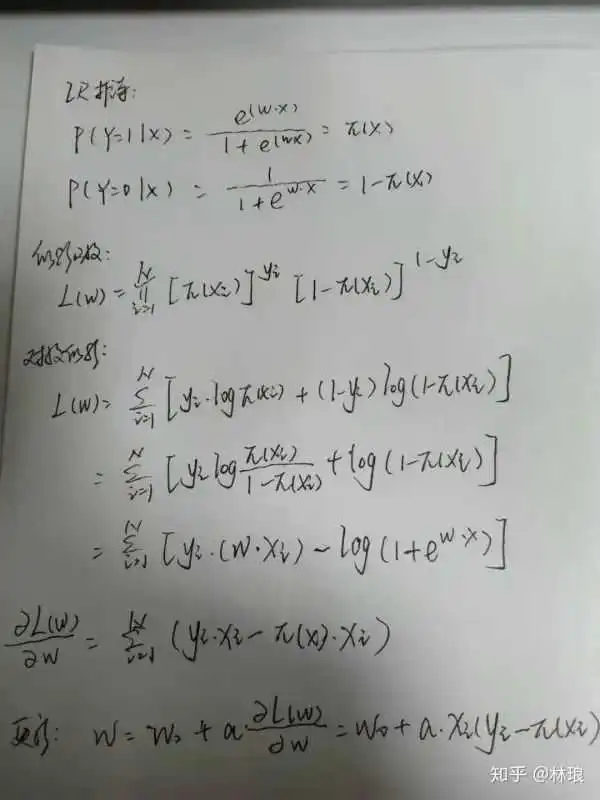 LR推导:
P(Y=1|x) = e^(w·x) / (1 + e^(wx)) = π(x)
P(Y=0|x) = 1 / (1 + e^w·x) = 1-π(x)
似然函数:
L(w) = ∏_{i=1}^{N} [π(xi)]^yi [1-π(xi)]^1-yi
对数似然:
L(w) = ∑_{i=1}^{N} [yi·logπ(xi) + (1-yi)log(1-π(xi)]
= ∑_{i=1}^{N} [yi log π(xi) / (1-π(xi) + log(1-π(xi)]
= ∑_{i=1}^{N} [yi·(w·xi) - log(1+e^w·x)]
∂L(w)/∂w = ∑_{i=1}^{N} (yi·xi - π(x)·xi)
更新: w = w0 + a·∂L(w)/∂w = w0 + a·xi(yi-π(xi)
知乎 @林琅